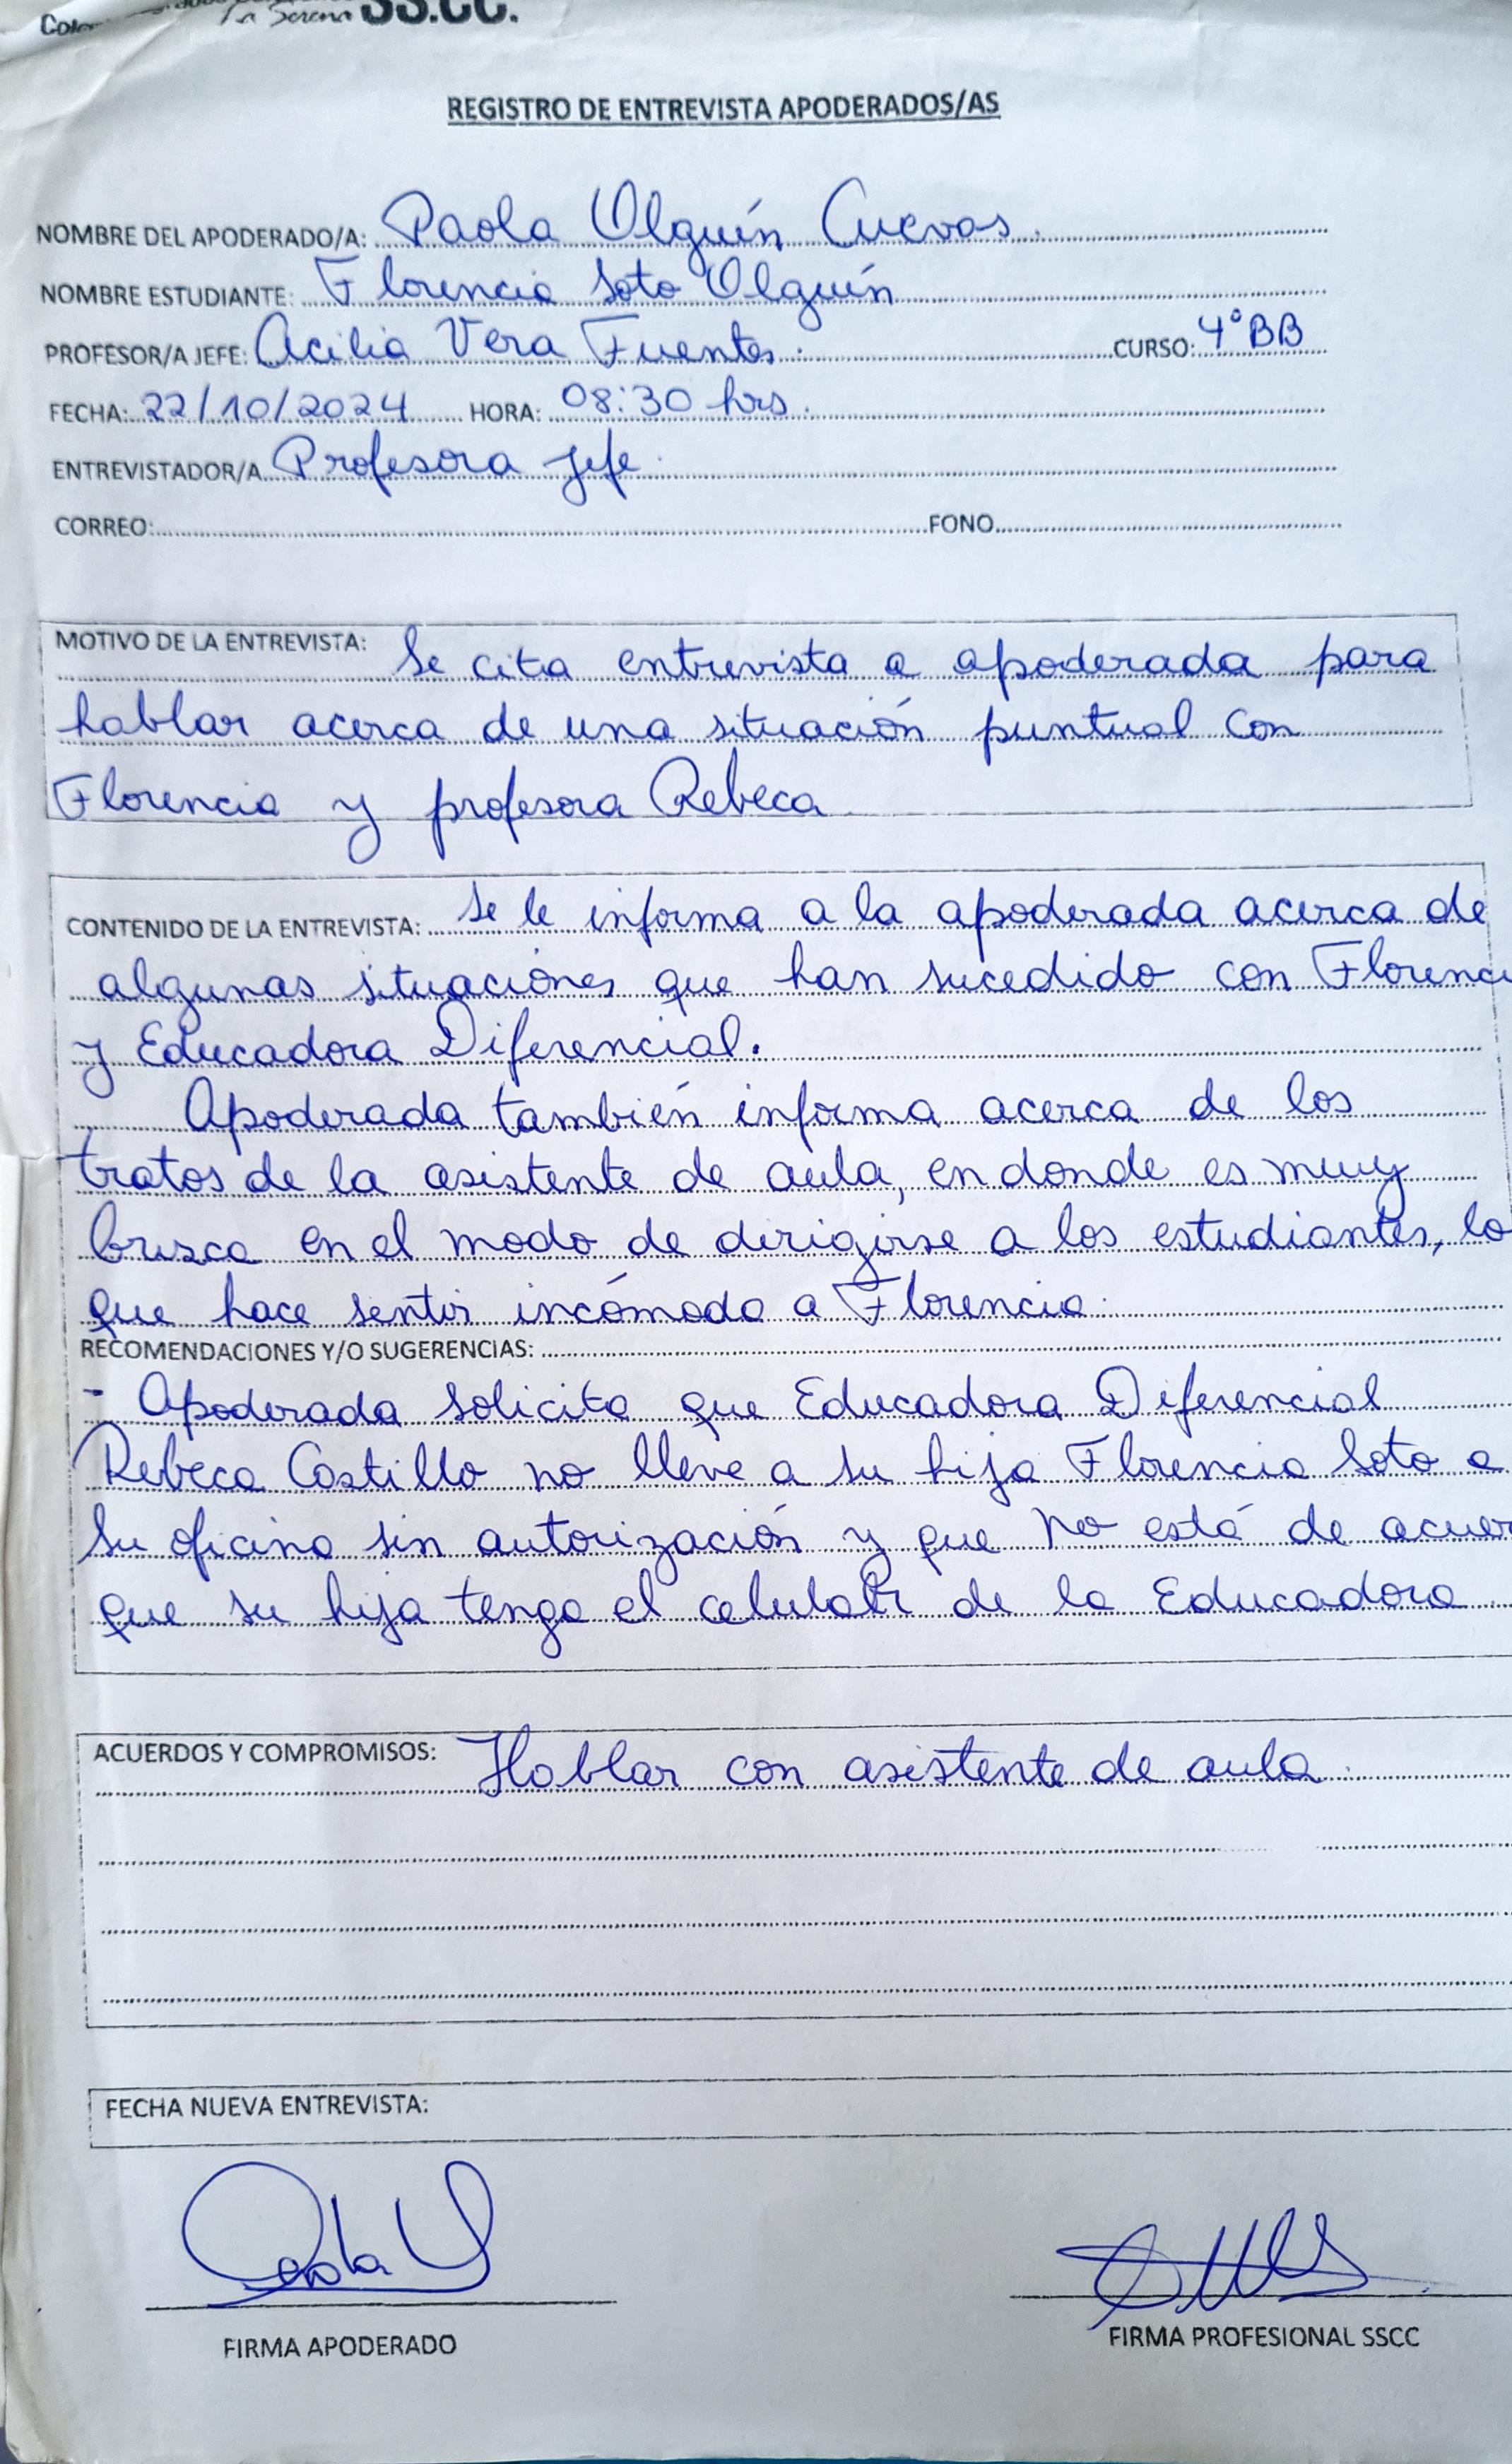 La Serena SS.CC.
REGISTRO DE ENTREVISTA APODERADOS/AS
NOMBRE DEL APODERADO/A: Paola Olguín Cuevas.
NOMBRE ESTUDIANTE: Florencia Soto Olguín
PROFESOR/A JEFE: Acilia Vera Fuentes. CURSO: 4°BB
FECHA: 22/10/2024 HORA: 08:30 hrs.
ENTREVISTADOR/A Profesora Jefe.
CORREO: FONO
MOTIVO DE LA ENTREVISTA: Se cita entrevista a apoderada para
hablar acerca de una situación puntual con
Florencia y profesora Rebeca
CONTENIDO DE LA ENTREVISTA: Se le informa a la apoderada acerca de
algunas situaciones que han sucedido con Florenc
y Educadora Diferencial.
Apoderada también informa acerca de los
tratos de la asistente de aula, en donde es muy
brusca en el modo de dirigirse a los estudiantes, lo
que hace sentir incómoda a Florencia.
RECOMENDACIONES Y/O SUGERENCIAS:
- Apoderada solicita que Educadora Diferencial
Rebeca Castillo no lleve a su hija Florencia Soto a
su oficina sin autorización y que no está de acuer
que su hija tenga el celular de la Educadora.
ACUERDOS Y COMPROMISOS: Hablar con asistente de aula.
FECHA NUEVA ENTREVISTA:
Paola O
FIRMA APODERADO
FIRMA PROFESIONAL SSCC